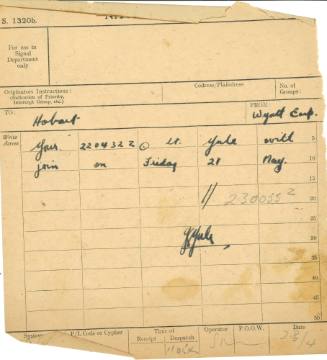 S. 1320b.
For use in
Signal
Department
only
Originators Instructions:
(Indication of Priority,
Intercept Group, etc.)
Codress/Plaindress
No. of
Groups:
TO:
FROM:
Hobart
Wyatt Earp.
Write
Across
Your 220432Z @ Lt. Yule will
5
join on Friday 28 May.
10
// 230053Z
15
20
GYule
25
30
35
40
45
50
System
P/L Code or Cypher
Time of
Receipt
Despatch
Operator
P.O.O.W.
Date